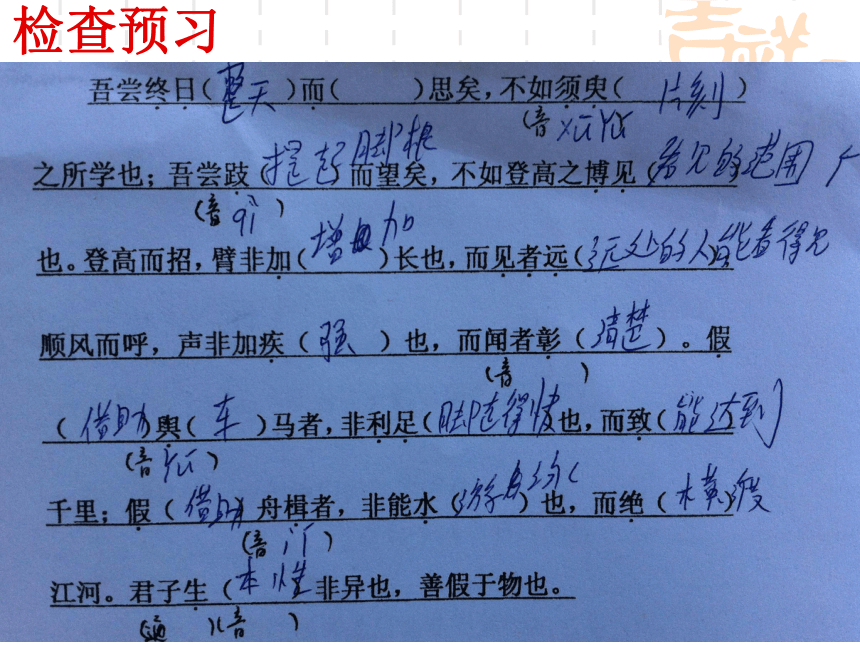 检查预习
吾尝终日(整天)而( )思矣,不如须臾(片刻)
(音
之所学也;吾尝跂(提起脚根而望矣,不如登高之博见(看见的范围广
(音qǐ)
也。登高而招,臂非加(增加)长也,而见者远(远处的人能看得见
顺风而呼,声非加疾(强)也,而闻者彰(清楚)。假
(音 )
(借助舆(车)马者,非利足(脚走得快也,而致(能达到)
(音yú)
千里;假(借助舟楫者,非能水(游泳)也,而绝(横渡
(音jí)
江河。君子生(本性非异也,善假于物也。
(通 )(音 )